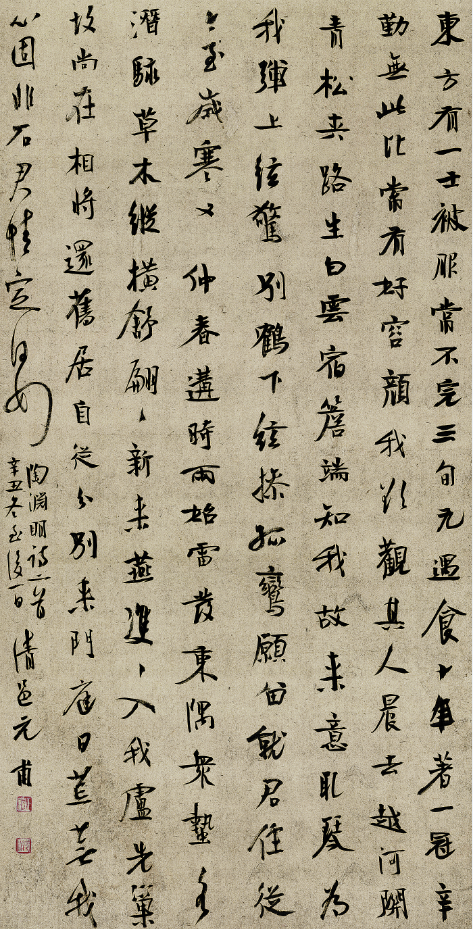 東方有一士被服常不完三旬九遇食十年著一冠辛
勤無此比常有好容顏我欲觀其人晨去越河關
青松夾路生白雲宿簷端知我故來意取琴為
我彈上絃驚別鶴下絃操孤鸞願留就君住從
今至歲寒又仲春遘時雨始雷發東隅衆蟄各
潛駭草木縱橫舒翩〻新來燕雙〻入我廬先巢
故尚在相將還舊居自從分別來門庭日荒蕪我
心固非石君情定何如
陶淵明詩二首
辛丑冬至後一日
清邑元甫